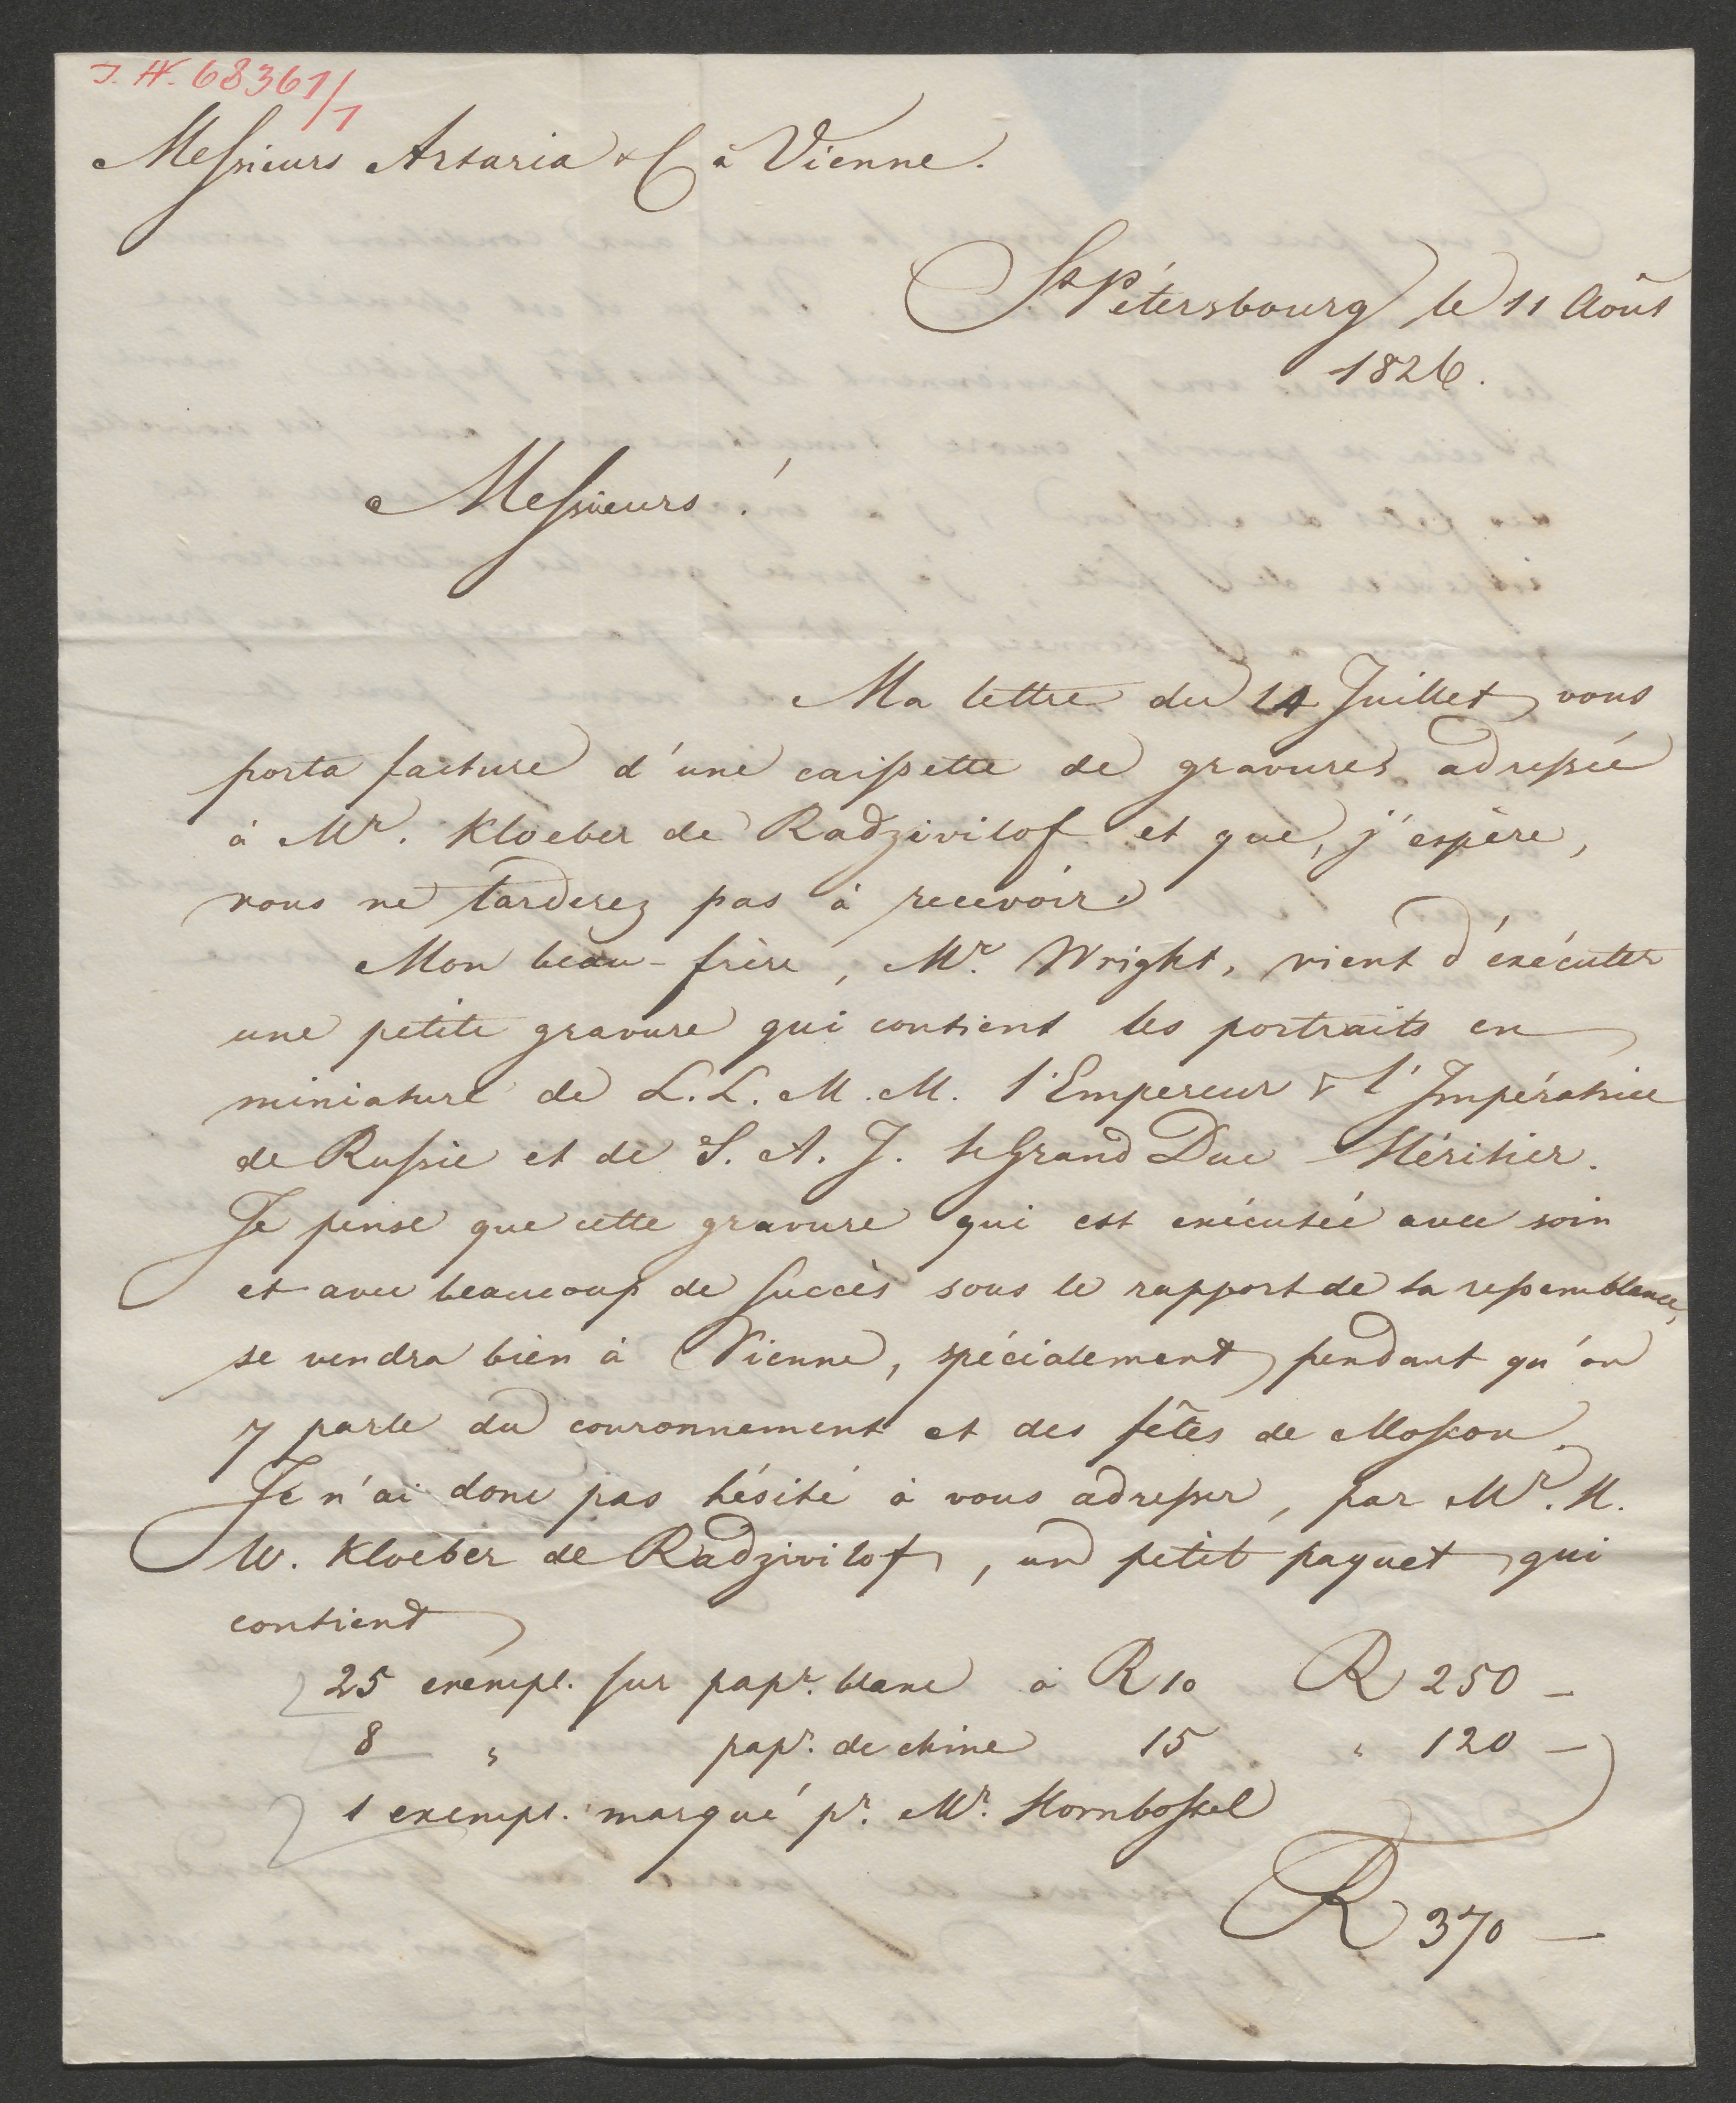 J. N. 68361/1
Messieurs Artaria & C à Vienne.
St Pétersbourg le 11 Août
1826.
Messieurs!
Ma lettre du 14 Juillet vous
porta facture d'une caissette de gravures adressée
à Mr. Kloeber de Radzivilof et que, j'espère,
vous ne tarderez pas à recevoir.
Mon beau-frère, Mr. Wright, vient d'exécuter
une petite gravure qui contient les portraits en
miniature de L.L.M.M. l'Empereur & l'Impératrice
de Russie et de S. A. J. le Grand Duc Héritier.
Je pense que cette gravure qui est exécutée avec soin
et avec beaucoup de succès sous le rapport de la ressemblance,
se vendra bien à Vienne, spécialement pendant qu'on
y parle du couronnement et des fêtes de Moscou.
Je n'ai donc pas hésité à vous adresser, par Mr. H.
W. Kloeber de Radzivilof, un petit paquet qui
contient
25 exempl. sur papr. blanc à R 10 R 250 —
8 " papr. de chine 15 " 120 —
1 exempl. marqué pr. Mr. Hornbostel
R 370 —